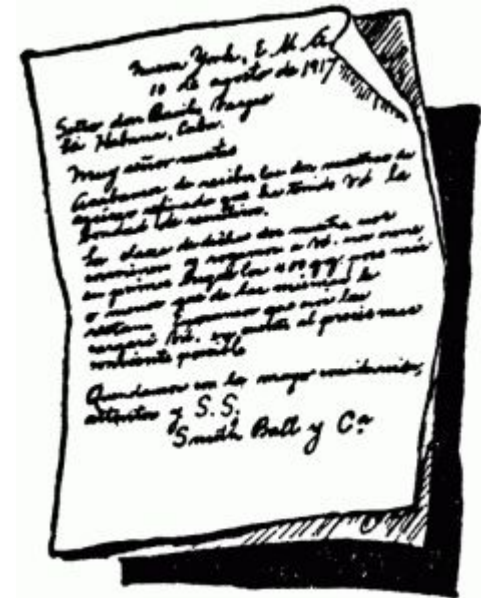 Nueva York, E. U. A.
10 de agosto de 1917
Señor don Basilio Vargas
La Habana, Cuba.
Muy señor nuestro
Acabamos de recibir las dos muestras de
azúcar refinado que ha tenido Vd. la
bondad de remitirnos.
La clase de dichas dos muestras nos
conviene y rogamos a Vd. nos
en primer lugar los 40 qq. poco más
o menos que de las mismas le
restan. Esperamos que nos las
cargará Vd. en cuenta al precio más
conveniente posible
Quedamos con la mayor consideración,
atentos y S. S.
Smith Ball y Cª